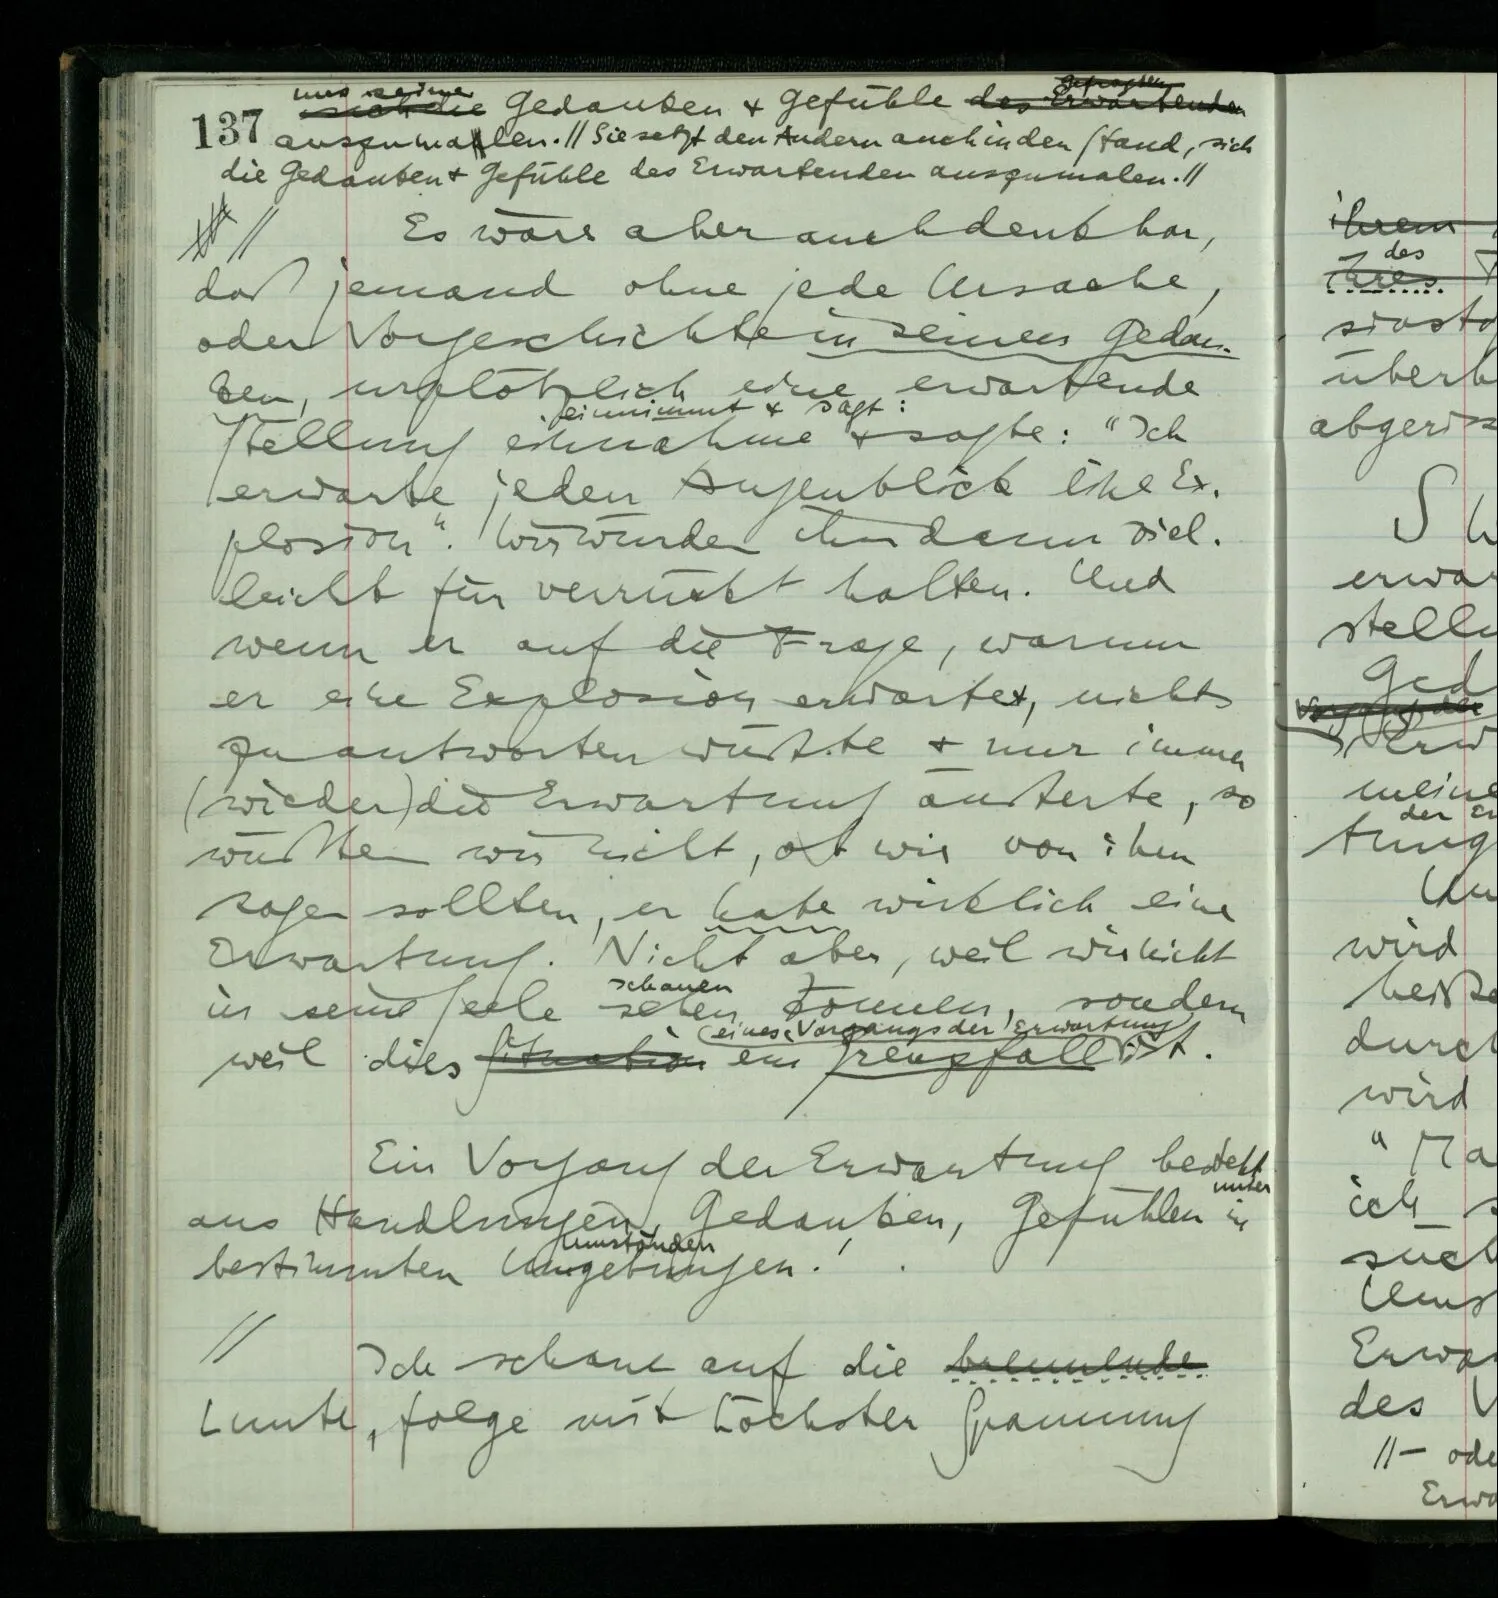 uns seine Gefragten
137 sich die Gedanken & Gefühle des Erwartenden
auszumalen. // Sie setzt den Andern auch in den Stand, sich
die Gedanken & Gefühle des Erwartenden auszumalen. //
// Es wäre aber auch denkbar,
daß jemand ohne jede Ursache,
oder Vorgeschichte in seinen Gedan-
ken, urplötzlich eine erwartende
einnimmt & sagt:
Stellung einnahme & sagte: "Ich
erwarte jeden Augenblick eine Ex-
plosion". Wir würden ihn dann viel-
leicht für verrückt halten. Und
wenn er auf die Frage, warum
er eine Explosion erwartet, nichts
zu antworten wüßte & nur immer
(wieder) die Erwartung äußerte, so
wüßten wir nicht, ob wir von ihm
sagen sollten, er habe wirklich eine
Erwartung. Nicht aber, weil wir nicht
schauen
in seine Seele sehen können, sondern
(eines Vorgangs der Erwartung)
weil dies Situation ein Grenzfall ist.
Ein Vorgang der Erwartung besteht
unter
aus Handlungen, Gedanken, Gefühlen in
Umständen
bestimmten Umgebungen.
// Ich schaue auf die brennende
Lunte, folge mit höchster Spannung
ihrem
des
ihres
überh
S
erwar
stelle
Ged
Erw
meine
der Er
tung
wird
heiße
durch
wird
"Ma
ich s
such
Ums
Erwar
des V
// – ode
Erwa